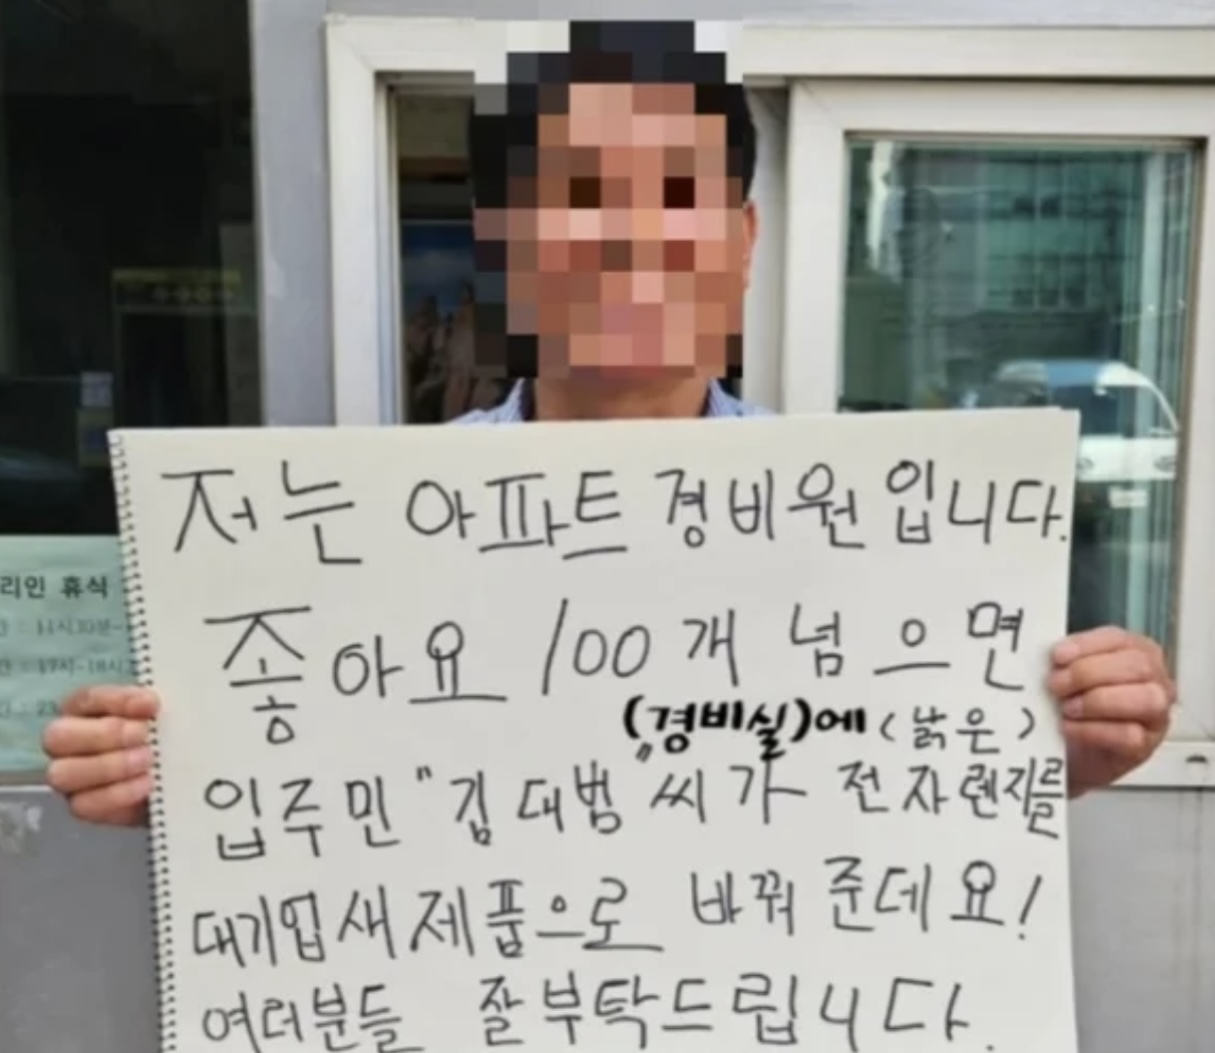 저는 아파트 경비원입니다.
좋아요 100개 넘으면
(경비실)에 (낡은)
입주민 "김대범"씨가 전자렌지를
대기업새제품으로 바꿔준데요!
여러분들 잘부탁드립니다.
리인 휴식
: 11시30분~
: 17시~18시
: 23